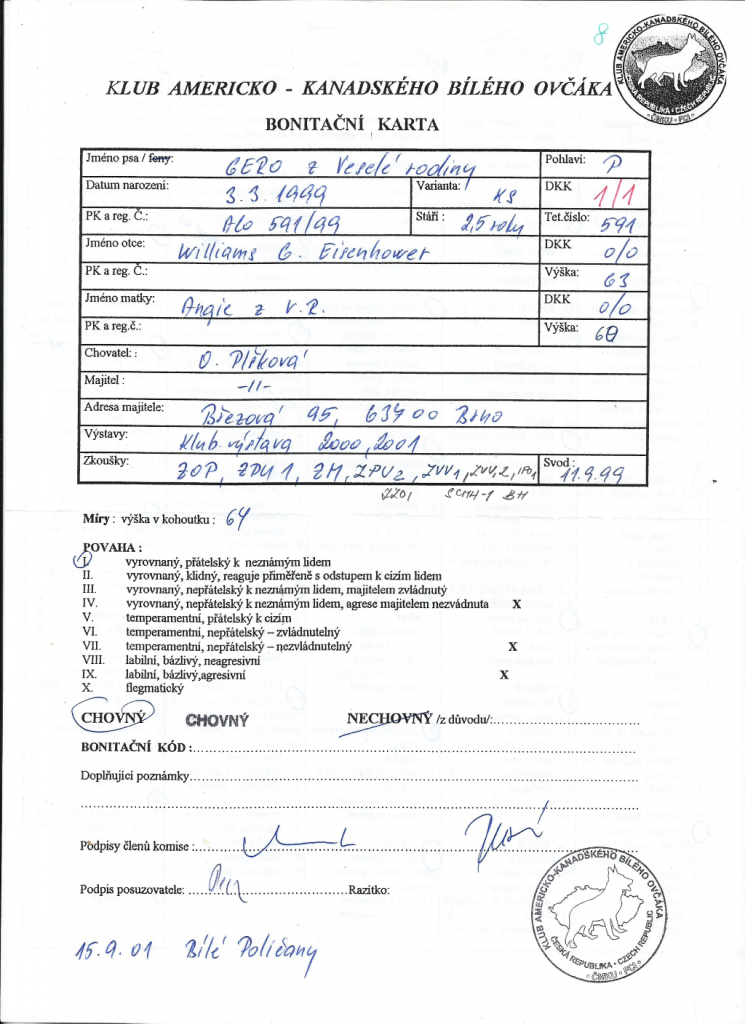 8
KLUB AMERICKO-KANADSKÉHO BÍLÉHO OVČÁKA
ČESKÁ REPUBLIKA · CZECH REPUBLIC
· ČMKU · FCI ·
KLUB AMERICKO - KANADSKÉHO BÍLÉHO OVČÁKA
BONITAČNÍ KARTA
Jméno psa / feny: GERO z Veselé rodiny Pohlaví: P
Datum narození: 3.3.1999 Varianta: KS DKK 1/1
PK a reg. Č.: Alo 591/99 Stáří : 2,5 roky Tet.číslo: 591
Jméno otce: Williams G. Eisenhower DKK 0/0
PK a reg. Č.: Výška: 63
Jméno matky: Angie z V.R. DKK 0/0
PK a reg.č.: Výška: 60
Chovatel: : O. Plšková
Majitel : -11-
Adresa majitele: Březová 95, 637 00 Brno
Výstavy: Klub. výstava 2000, 2001
Zkoušky: ZOP, ZPU 1, ZM, ZPU2, ZVV1, ZVV2, IPO1 Svod : 11.9.99
ZZO, SCHH-1 BH
Míry : výška v kohoutku : 64
POVAHA :
I. vyrovnaný, přátelský k neznámým lidem
II. vyrovnaný, klidný, reaguje přiměřeně s odstupem k cizím lidem
III. vyrovnaný, nepřátelský k neznámým lidem, majitelem zvládnutý
IV. vyrovnaný, nepřátelský k neznámým lidem, agrese majitelem nezvádnuta X
V. temperamentní, přátelský k cizím
VI. temperamentní, nepřátelský – zvládnutelný
VII. temperamentní, nepřátelský – nezvládnutelný X
VIII. labilní, bázlivý, neagresivní
IX. labilní, bázlivý,agresivní X
X. flegmatický
CHOVNÝ CHOVNÝ NECHOVNÝ /z důvodu/:
BONITAČNÍ KÓD :
Doplňující poznámky
Podpisy členů komise :
Podpis posuzovatele: Razítko:
KLUB AMERICKO-KANADSKÉHO BÍLÉHO OVČÁKA
ČESKÁ REPUBLIKA · CZECH REPUBLIC
· ČMKU · FCI ·
15.9.01 Bílé Poličany